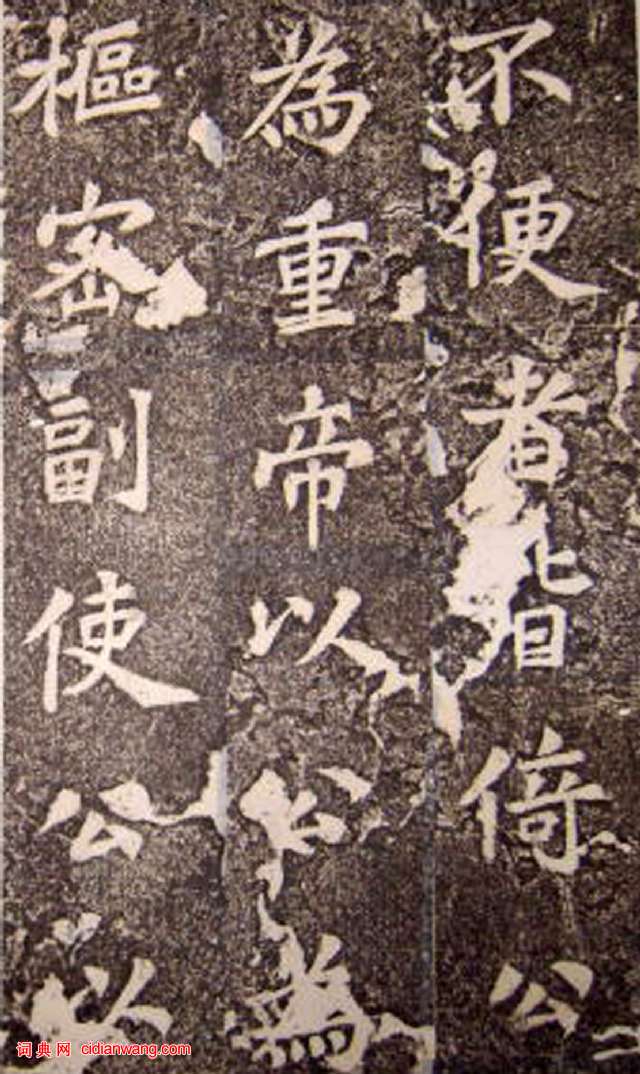 不便者皆倚公
為重帝以公為
樞密副使公以
词典网 cidianwang.com